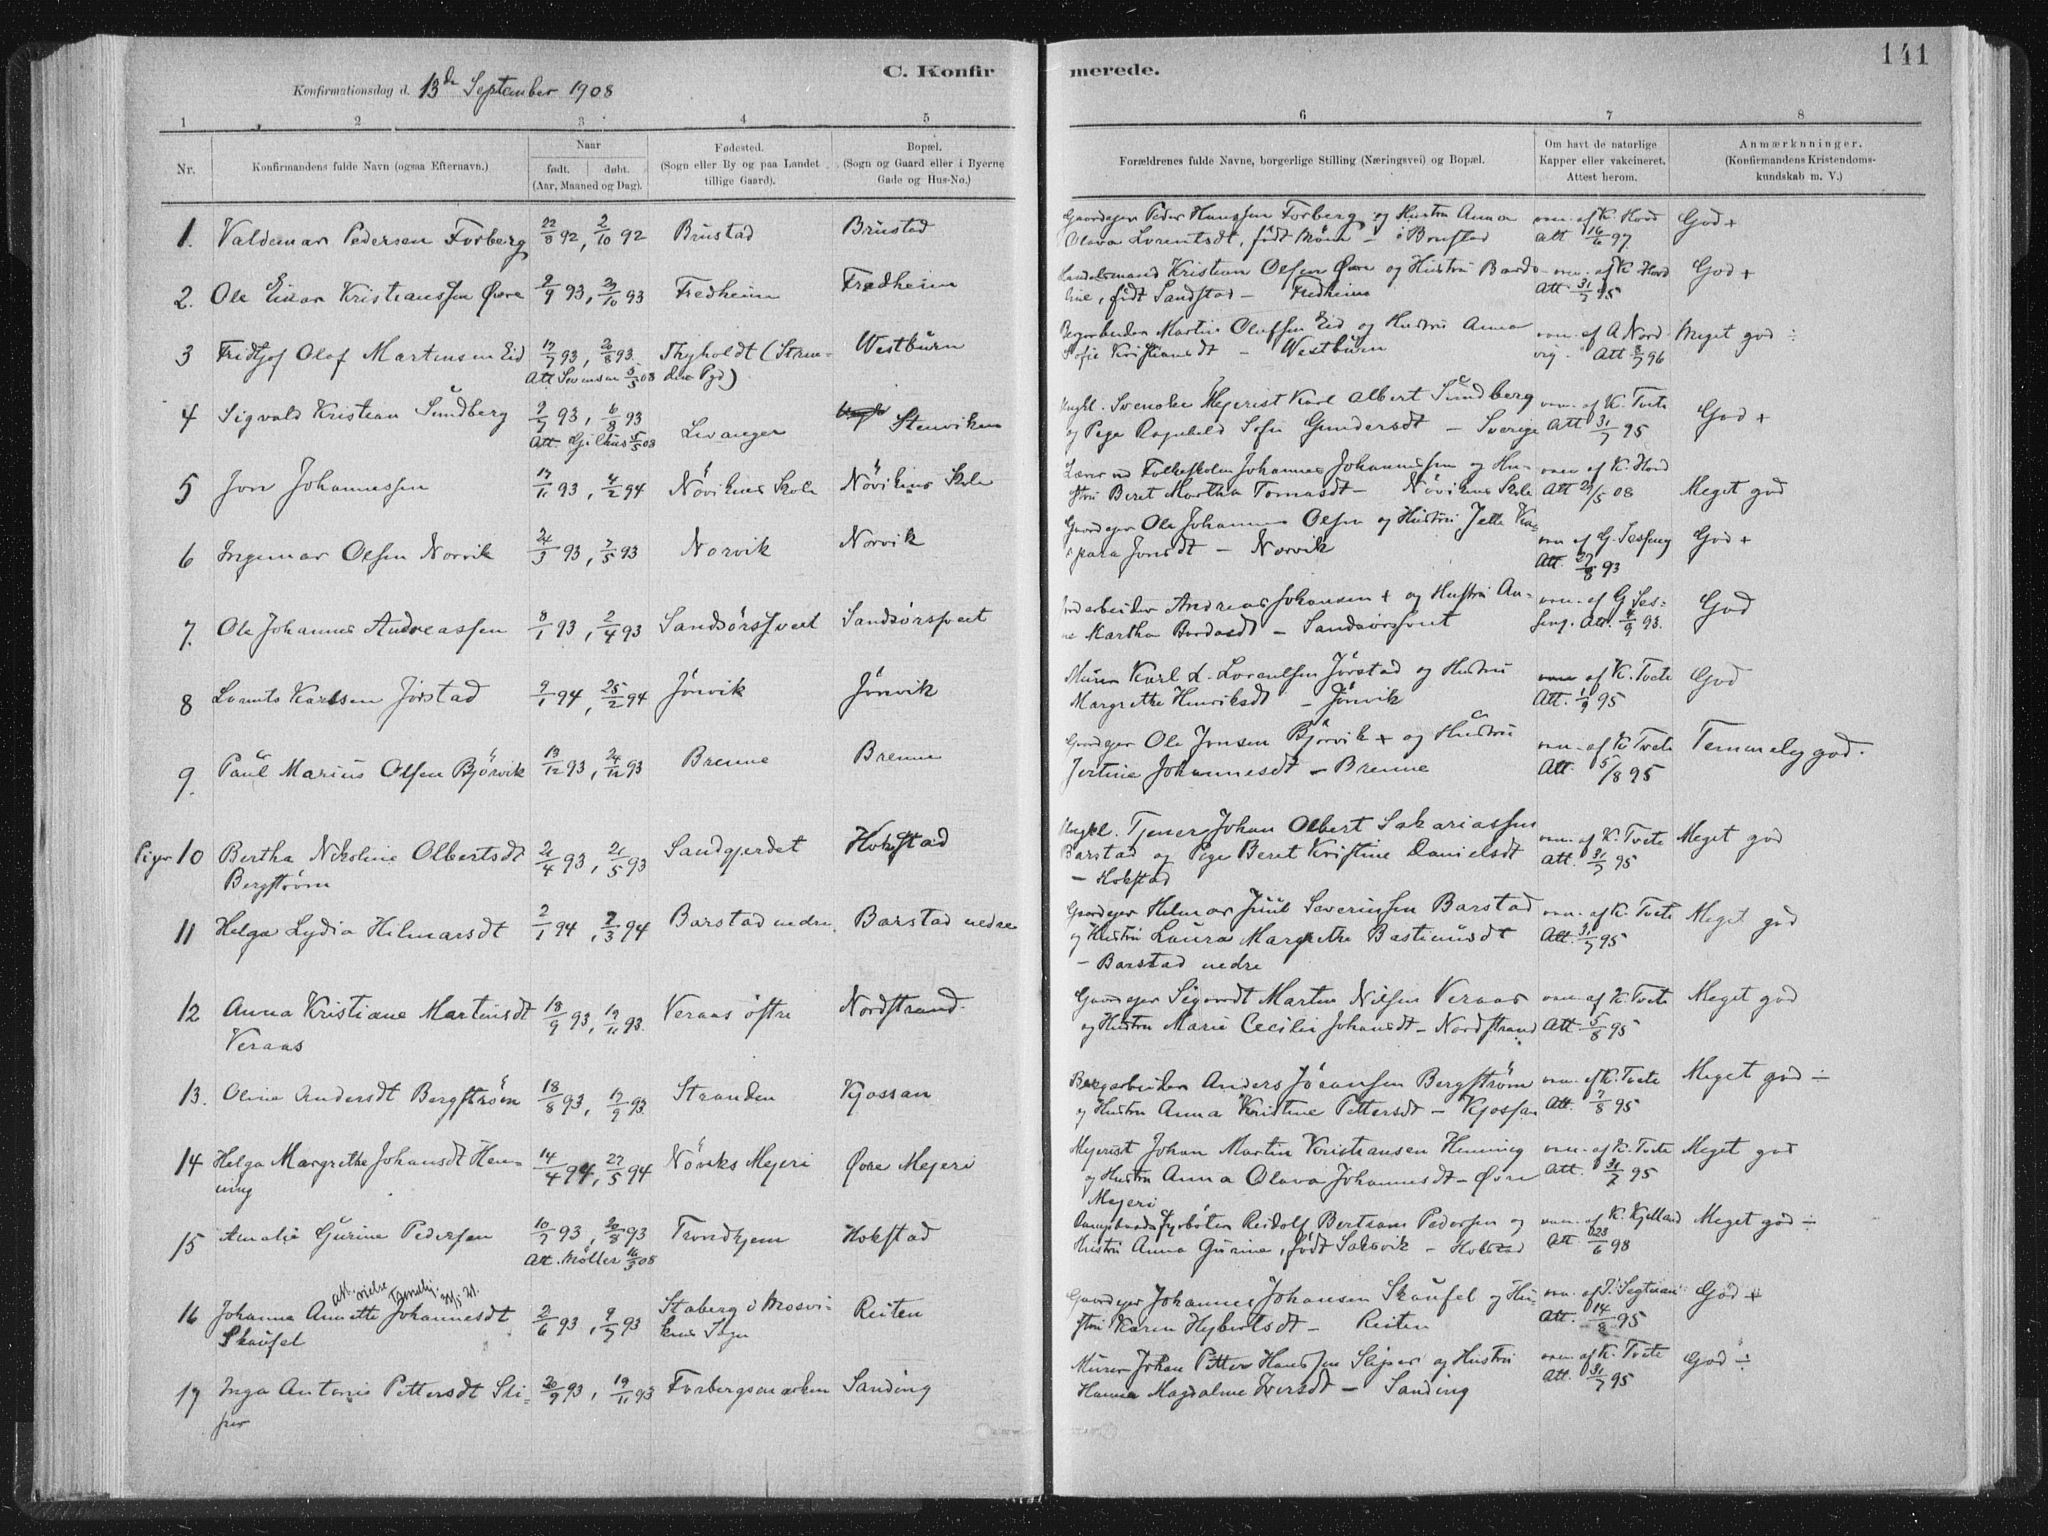 141
C. Konfirmerede.
Konfirmationsdag d. 13de September 1908
1 2 3 4 5 6 7 8
Nr. Konfirmandens fulde Navn (ogsaa Efternavn.)
Naar født. døbt. (Aar, Maaned og Dag).
Fødested. (Sogn eller By og paa Landet tillige Gaard).
Bopæl. (Sogn og Gaard eller i Byerne Gade og Hus-No.)
Forældrenes fulde Navne, borgerlige Stilling (Næringsvei) og Bopæl.
Om havt de naturlige Kapper eller vakcineret. Attest herom.
Anmærkninger. (Konfirmandens Kristendomskundskab m. V.)
1. Valdemar Pedersen Forberg 22/8 92, 2/10 92 Brustad Brustad
Gaardejer Peder Hanssen Forberg og Hustru Anna
Olava Lorentsdt, født Moum – i Brustad
vac. af K. Hovd Att 16/6 97. God +
2. Ole Einar Kristianssen Øvre 2/9 93, 29/10 93 Fredheim Fredheim
Handelsmand Kristian Olsen Øvre og Hustru Bardo-
line, født Sandstad – Fredheim
vac. af K. Hovd Att 31/7 95 God +
3 Fridtjof Olaf Martinsen Eid 17/7 93, 20/8 93. Thyholdt (Strindens Pgd) Westburn
Att Sevensen 5/3 08
Bergarbeider Martin Oluffsen Eid og Hustru Anna
Sofie Kristiansdt – Westburn
vac. af A Nordvig. Att 8/7 96 Meget god ÷
4 Sigvald Kristian Sundberg 9/7 93, 6/8 93 Levanger Stenviken
Att Gjilhus 5/5 08
Ungkl. Svenske Mejerist Karl Albert Sundberg
og Pige Ragnhild Sofie Gundersdt – Sverige
vac. af K. Tvete Att 31/7 95 God +
5 Jon Johannessen 17/11 93, 4/2 94 Növikens Skole Növikens Skole
Lærer ved Folkeskolen Johannes Johannessen og Hu-
stru Beret Martha Tomasdt – Növikens Skole
vac. af K. Hovd Att 29/5 08 Meget god
6 Ingemar Olsen Norvik 24/3 93, 7/5 93 Norvik Norvik
Gaardejer Ole Johannes Olsen og Hustru Jette Ka-
spara Jonsdt – Norvik
vac. af G. Sesseng Att. 27/8 93 God +
7. Ole Johannes Andreassen 8/1 93, 2/4 93 Sandsørsfveet Sandsørsfveet
Jordarbeider Andreas Johansen + og Hustru An-
ne Martha Bardosdt – Sandsørsfvet
vac. af G Sesseng. Att. 4/9 93. God
8 Lorents Karlsen Jörstad 9/1 94, 25/2 94 Jönvik Jönvik
Murer Karl L. Lorentsen Jörstad og Hustru
Margrethe Henriksdt – Jönvik
vac. af K. Tvete Att. 1/9 95 God
9. Paul Marius Olsen Bjørvik 13/12 93, 24/12 93 Brenne Brenne
Gaardejer Ole Jonsen Bjørvik + og Hustru
Jertine Johannesdt – Brenne
vac. af K. Tvete Att. 5/8 95 Temmelig god.
Piger 10 Bertha Nikoline Olbertsdt Bergstrøm 21/4 93, 21/5 93 Sandgjerdet Hokstad
Ungkl. Tjener Johan Olbert Sakariassen
Barstad og Pige Beret Kristine Danielsdt
– Hokstad
vac. af K. Tvete Att. 31/7 95 Meget god
11 Helga Lydia Hilmarsdt 2/1 94, 7/3 94 Barstad nedre. Barstad nedre
Gaardejer Hilmar Juul Severinsen Barstad
og Hustru Laura Margrethe Bastiansdt
– Barstad nedre
vac. af K. Tvete Att. 31/7 95 Meget god
12 Anna Kristiane Martinsdt Veraas 18/9 93, 19/11 93. Veraas östre Nordstrand.
Gaardejer Sigvardt Martin Nilsen Veraas
og Hustru Marie Cecilie Johansdt – Nordstrand
vac. af K. Tvete Att. 5/8 95 Meget god
13. Oline Andersdt Bergstrøm 18/8 93, 17/9 93. Stranden Kjossan
Bergarbeider Anders Jöransen Bergstrøm
og Hustru Anna Kristine Pettersdt – Kjossan
vac. af K. Tvete Att. 7/8 95 Meget god ÷
14 Helga Margrethe Johansdt Hen-
ning 14/4 94, 27/5 94 Növiks Mejeri Øvre Mejeri
Mejerist Johan Martin Kristiansen Henning
og Hustru Anna Olava Johannesdt – Øvre
Mejeri
vac. af K. Tvete Att. 31/7 95 Meget god
15 Amalie Gurine Pedersen 10/7 93, 20/8 93 Trondhjem Hokstad
Att. Møller 16/3 08
Dampbaads Fyrbøter Reidolf Bertram Pedersen og
Hustru Anna Gurine, født Saksvik – Hokstad
vac. af K. Kjelland Att. 23/6 98 Meget god ÷
16 Johanna Annette Johannesdt Skaufel 2/6 93, 9/7 93 Staberg i Mosvi-
kens Sogn Reiten
Gaardejer Johannes Johansen Skaufel og Hu-
stru Karen Hybertsdt – Reiten
Att. 14/8 95 God +
17 Inga Antonie Pettersdt Sli-
per 20/9 93, 19/11 93 Forbergsmarken Sanding
Murer Johan Petter Hanssen Sliper og Hustru
Hanna Magdalene Iversdt – Sanding
vac. af K. Tvete Att. 31/7 95 God ÷